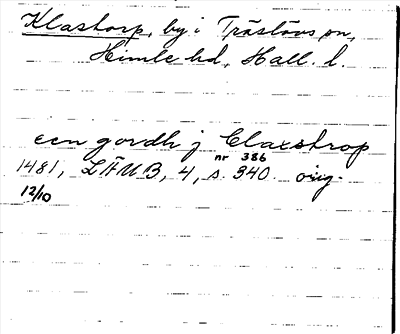 Klastorp, by i Träslövs sn,
Himle hd, Hall. l.
een gordh j Claxstrop
nr 386
1481, LÄUB, 4, s. 340. orig.
12/10